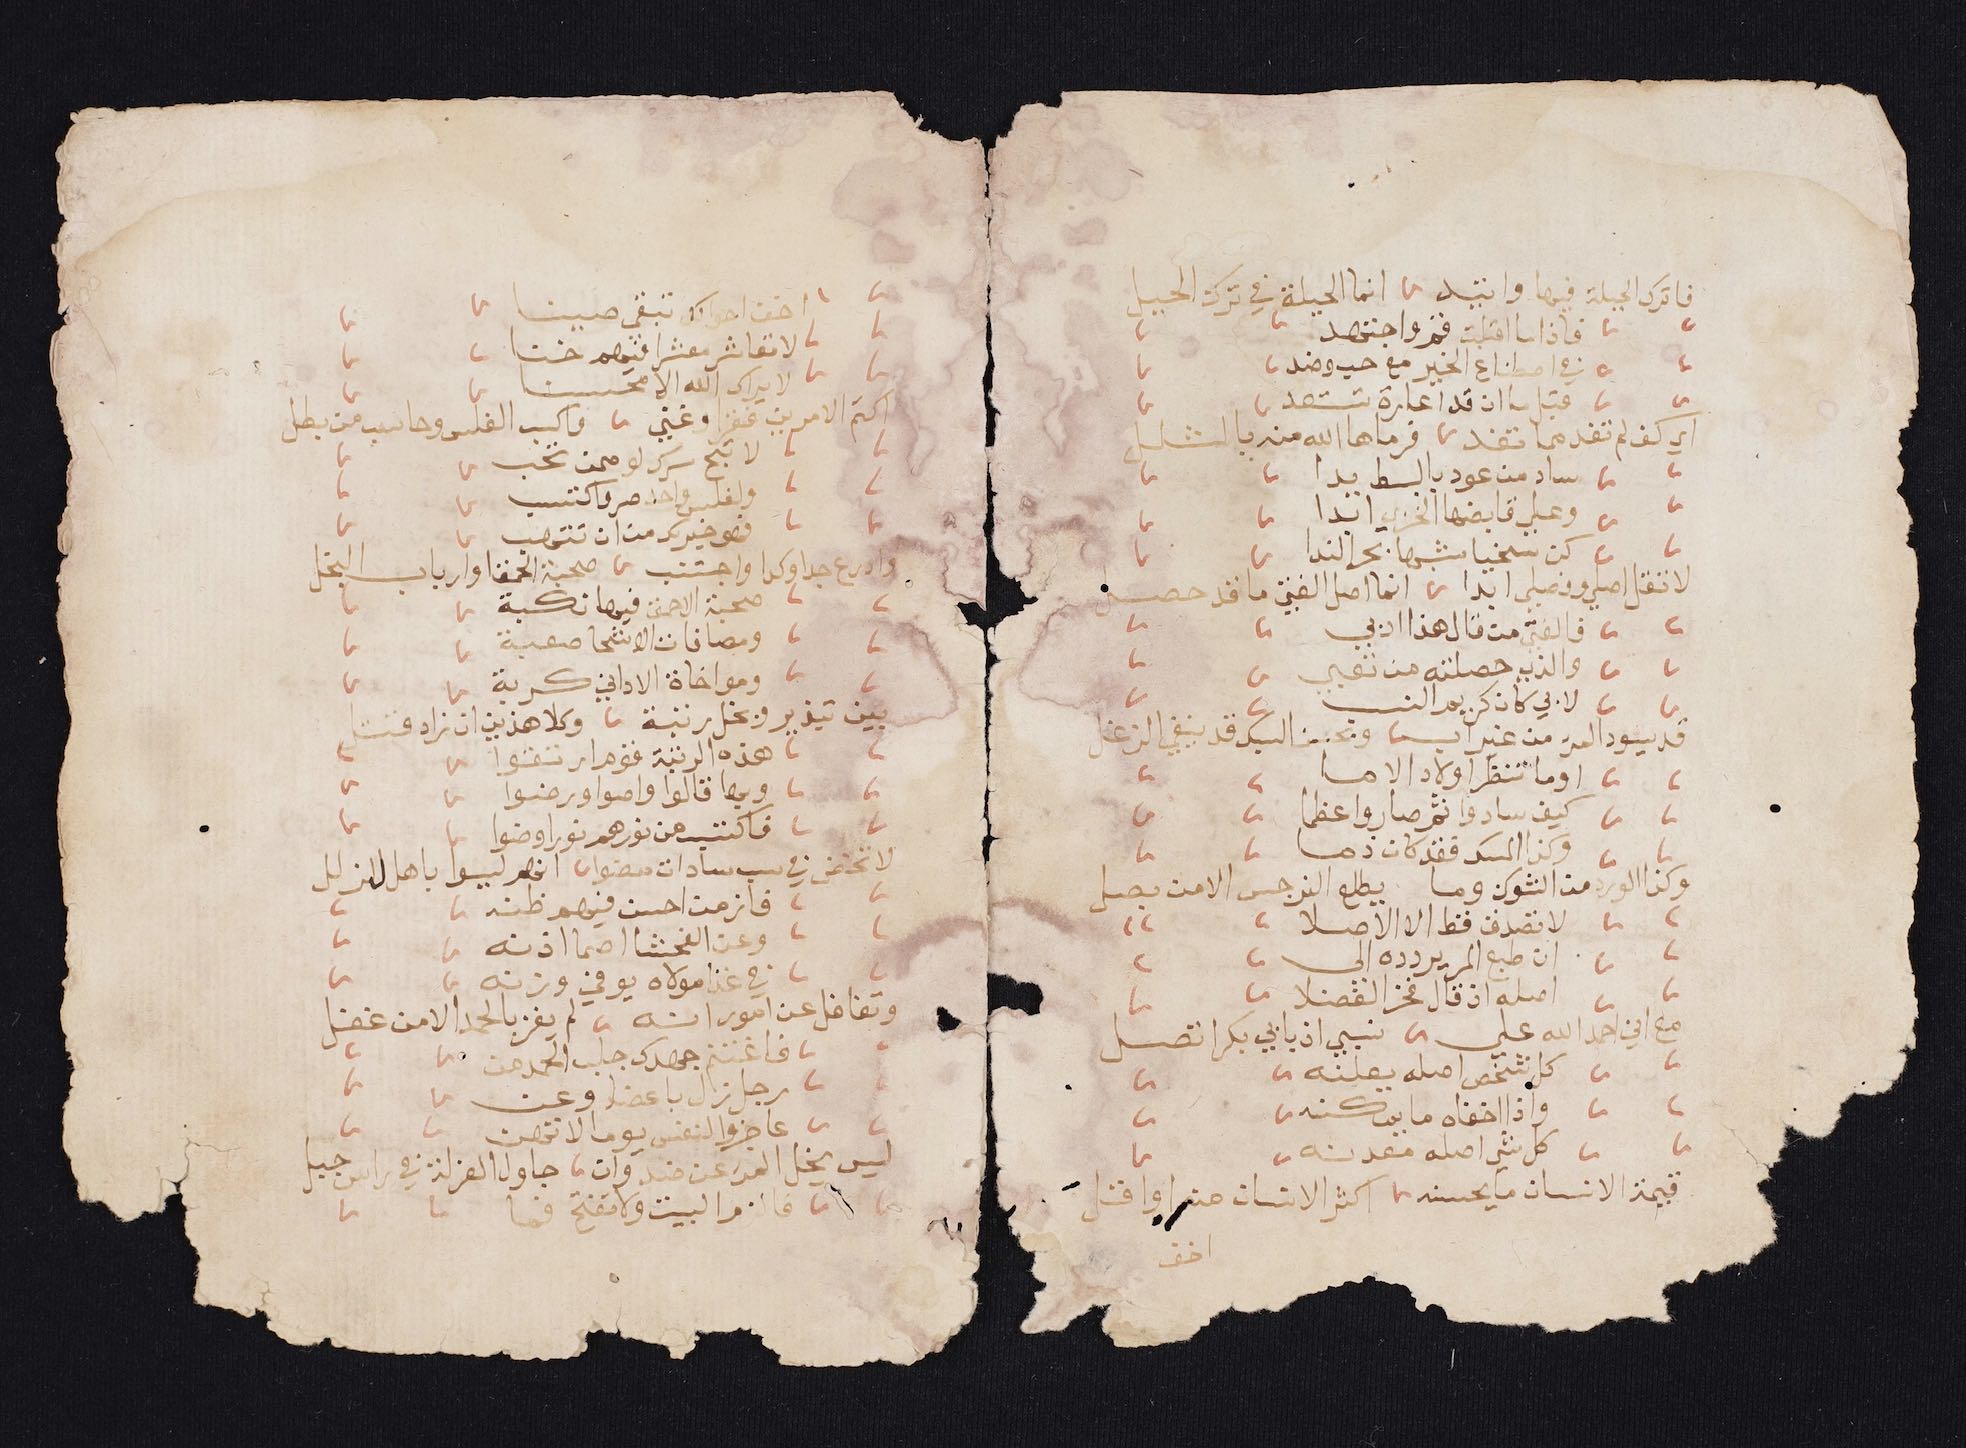 فاترك الحيلة فيها واتئد انما الحيلة في ترك الحيل
فاذا ما اقبلت قم واجتهد
في اصطناع الخير مع حب وضد
قبل ما ان قد اعارة تسترد
اي كف لم تفد مما تفد فرماها الله منه بالشلل
ساد من عود بالبسط يدا
وعلى قابضها الخزي ابدا
كن سخيا مشبها بحر الندا
لا تقل اصلي وفصلي ابدا انما اصل الفتى ما قد حصل
فالفتى من قال هذا ادبي
والذي حصلته من تعبي
لا بي كان كريم النسب
قد يسود المرء من غير اب وبحسن السبك قد ينفي الزغل
اوما تنظر اولاد الاما
كيف سادوا ثم صاروا عظما
وكذا المسك فقد كان دما
وكذا الورد من الشوك وما يطلع النرجس الا من بصل
لا تصدق قط الا الاصلا
ان طبع المرء يردده الى
اصله اذ قال فخر الفضلا
مع اني احمد الله على نسبي اذ بابي بكر اتصل
كل شخص اصله يعلنه
واذا اخفاه ما يمكنه
كل شي اصله معدنه
قيمة الانسان ما يحسنه اكثر الانسان منه او اقل
اخف
اخف احوالك تبقى صينا
لا تعاشر معشرا فيهم خنا
لا يراك الله الا محسنا
اكتم الامرين فقرا وغنى واكسب الفلس وحاسب من بطل
لا تبح سرك لو ممن تحب
ولفلس واحد صر واكتسب
فهو خير لك من ان تنتهب
وادرع جدا وكدا واجتنب صحبة الحمقا وارباب البخل
صحبة الاحمق فيها نكبة
ومصافات الاشحا صعبة
ومواخاة الاداني كربة
بين تبذير وبخل رتبة وكلا هذين ان زاد قتل
هذه الرتبة قوم ارتقوا
وبها قالوا واصوا ورضوا
فاكتسب من نورهم نورا وضوا
لا تخض في سب سادات مضوا انهم ليسوا باهل للزلل
فاز من احسن فيهم ظنه
وعن الفحشا اصما اذنه
في غدا مولاه يوفي وزنه
وتغافل عن امور انه لم يفز بالحمد الا من غفل
فاغتنم جهدك جلب الحمد من
رجل زال باعضا وعن
عاجز والنفس يوما لا تهن
ليس يخل المرء عن ضد وان حاول العزلة في راس جبل
فالزم البيت ولا تفتح فما